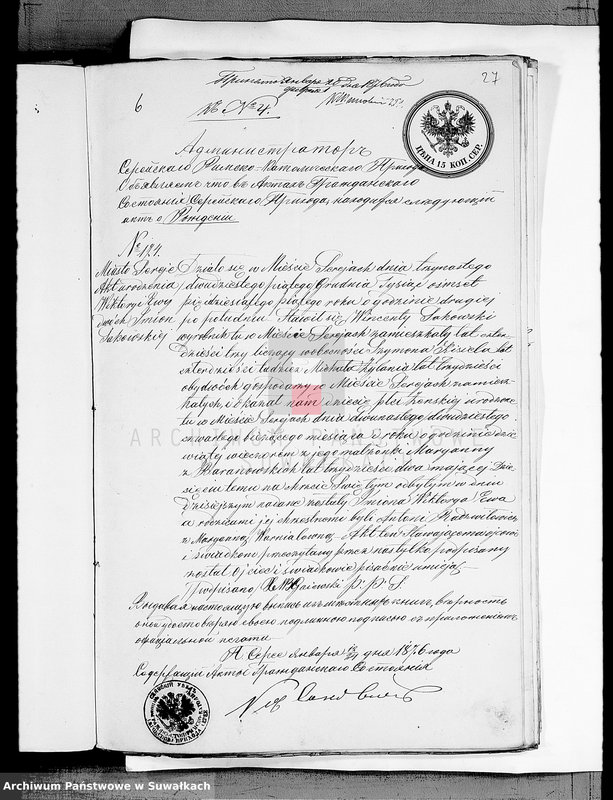 27
6
къ № 4.
ЦѢНА 15 КОП. СЕР.
Администраторъ
Серейскаго Римско-Католическаго Прихода
Объявляетъ что въ Актахъ Гражданскаго
Состоянія Серейскаго Прихода, находится слѣдующій
актъ о Рожденіи
№ 124.
Miasto Sereje
Akt urodzenia
Wiktoryi Ewy
dwóch Imion
Sakowskiej
Działo się w Mieście Serejach dnia trzynastego
dwudziestego piątego Grudnia Tysiąc ośmset
pięćdziesiątego piątego roku o godzinie drugiej
po południu Stawił się Wincenty Sakowski
wyrobnik tu w Mieście Serejach zamieszkały lat czter-
dzieści trzy liczący w obecności Szymona lat
czterdzieści tudzież Michała lat trzydzieści
obydwóch gospodarzy w Mieście Serejach zamiesz-
kałych, i okazał nam dziecię płci żeńskiej urodzone
tu w Mieście Serejach dnia dwunastego dwudziestego
czwartego bieżącego miesiąca i roku o godzinie dzie-
wiątej wieczorem z jego małżonki Maryanny
z Baranowskich lat trzydzieści dwa mającej Dzie-
cięciu temu na Chrzcie Świętym odbytym w dniu
dzisiejszym nadane zostały Imiona Wiktorya Ewa
a rodzicami jej chrzestnemi byli Antoni
z Maryanną Akt ten stawającemu
i świadkom przeczytany przez nas tylko podpisany
został ojciec i świadkowie pisać nie umieją
/podpisano/
Выдавая настоящую выпись изъ книгъ, вѣрность
оной удостовѣряю своею подписью съ приложеніемъ
оффиціальной печати
Января дня 1876 года
Содержащій Акты Гражданскаго Состоянія
ARCHIWUM PAŃSTWOWE
Archiwum Państwowe w Suwałkach